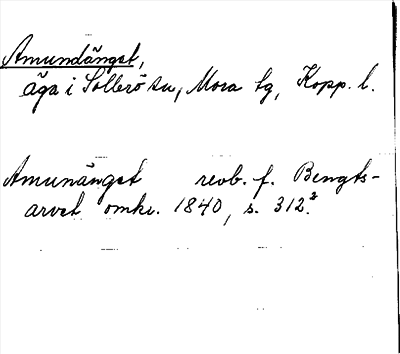 Amundänget,
äga i Sollerö sn, Mora tg, Kopp. l.
Amunänget revb. f. Bengts-
arvet omkr. 1840, s. 312.²